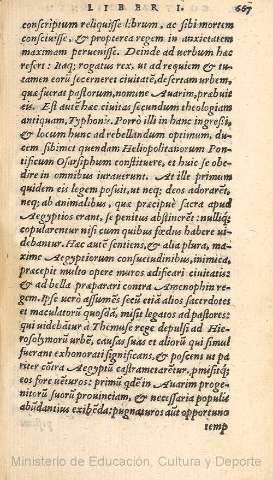 LIBER I.
667
conscriptum reliquisse librum, ac sibi mortem
consciuisse, & propterea regem in anxietatem
maximam peruenisse. Deinde ad verbum hæc
refert: Itaq; rogatus rex, vt ad requiem & tu-
tamen eorū secerneret ciuitatē, desertam vrbem,
quæ fuerat pastorum, nomine Auarim, præbuit
eis. Est autē hæc ciuitas secundum theologiam
antiquam, Typhonis. Porrò illi in hanc ingressi,
& locum hunc ad rebellandum optimum, du-
cem sibimet quendam Heliopolitanorum Pon-
tificum Osarsiphum constituere, et huic se obe-
dire in omnibus iurauerunt. At ille primum
quidem eis legem posuit, vt neq; deos adorarēt,
neq; ab animalibus, quæ præcipuè sacra apud
Aegyptios erant, se penitus abstinerēt : nulliq;
copularentur nisi cum quibus fœdus habere vi-
debantur. Hæc autē sentiens, & alia plura, ma-
xime Aegyptiorum consuetudinibus, inimica,
præcepit multo opere muros ædificari ciuitatis
& ad bella præparari contra Amenophin re-
gem. Ipse verò assumēs secū etiā alios sacerdotes
et maculatorū quosdā, misit legatos ad pastores
qui videbātur à Themuse rege depulsi ad Hie-
rosolymorū vrbē, causas suas et aliorū qui simul
fuerant exhonorati significans, & poscens vt pa-
riter cōtra Aegyptū castrametārētur, pmisitq;
eos fore vēturos: primū qdē in Auarim proge-
nitorū suorū prouinciam, & necessaria populis
abūdantius exibēda: pugnaturos aūt opportuno
temp
Ministerio de Educación, Cultura y Deporte